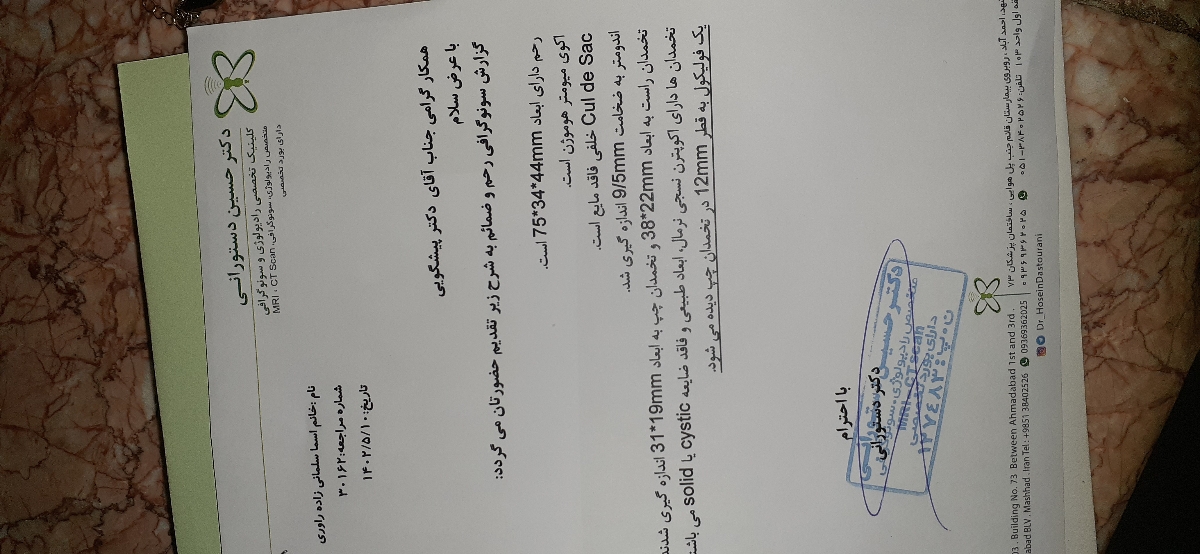 دکتر حسین دستورانـی
کلینیک تخصصی رادیولوژی و سونوگرافی
متخصص رادیولوژی، سونوگرافی، MRI ، CT Scan
دارای بورد تخصصی
نام :خانم اسما سلمانی زاده راوری
شماره مراجعه:۳۰۱۶۲
تاریخ:۱۴۰۲/۵/۱۰
همکار گرامی جناب آقای دکتر پیشگویی
با عرض سلام
گزارش سونوگرافی رحم و ضمائم به شرح زیر تقدیم حضورتان می گردد:
رحم دارای ابعاد 75*34*44mm است.
اکوی میومتر هوموژن است.
Cul de Sac خلفی فاقد مایع است.
اندومتر به ضخامت 9/5mm اندازه گیری شد.
تخمدان راست به ابعاد 38*22mm و تخمدان چپ به ابعاد 31*19mm اندازه گیری شدند
تخمدان ها دارای اکوپترن نسجی نرمال، ابعاد طبیعی و فاقد ضایعه cystic یا solid می باشند
یک فولیکول به قطر 12mm در تخمدان چپ دیده می شود.
با احترام
دکتر دستورانی
دکتر حسین دستورانی
متخصص رادیولوژی، سونوگرافی
MRI - CT scan
دارای بورد تخصصی
ن.پ: ۱۳۷۴۸۲
مشهد، احمد آباد ، روبروی بیمارستان قائم جنب پل هوایی ، ساختمان پزشکان ۷۳
طبقه اول واحد ۱۰۳ تلفن: ۳۸۴۰۲۵۲۶-۰۵۱ ۰۹۳۶۹۳۶۲۰۲۵
03 . Building No. 73 Between Ahmadabad 1st and 3rd .
abad BLV. Mashhad . Iran Tel: +9851 38402526 09369362025
Dr_HoseinDastourani